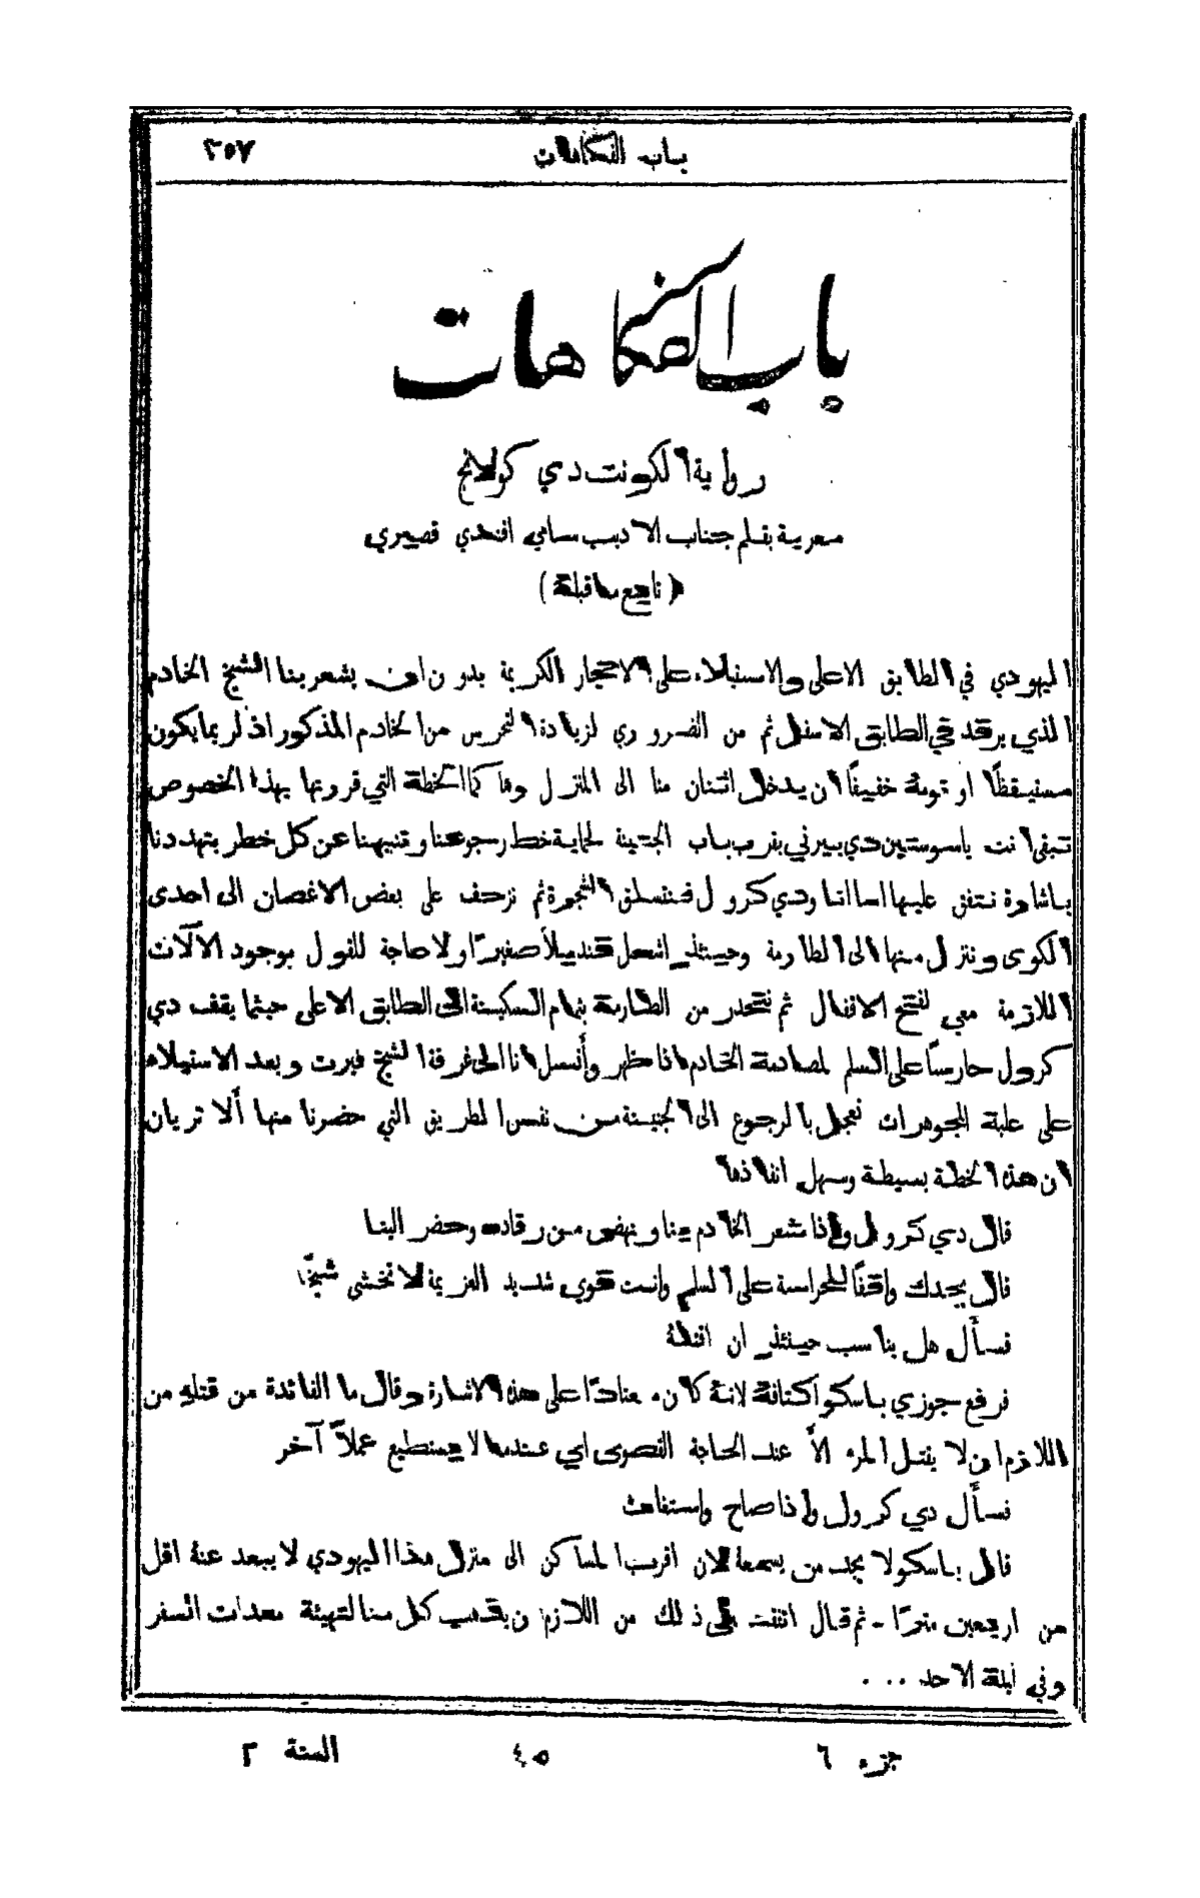 باب الفكاهات ٣٥٧
باب الفكاهات
رواية الكونت دي كولانج
معربة بقلم جناب الاديب سامي افندي قصيري
( تابع ما قبله )
اليهودي في الطابق الاعلى والاستيلاء على الاحجار الكريمة بدون ان يشعر بنا الشيخ الخادم
الذي يرقد في الطابق الاسفل ثم من الضروري لزيادة التحرس من الخادم المذكور اذ لربما يكون
مستيقظًا او نومهُ خفيفًا ان يدخل اثنان منا الى المنزل وهاكما الخطة التي قررتها بهذا الخصوص
تبقى انت ياسوستين دي بيرني بقرب باب الجنينة لحماية خط رجوعنا وتنبيهنا عن كل خطر يتهددنا
باشارة نتفق عليها اما انا ودي كرول فنتسلق الشجرة ثم نزحف على بعض الاغصان الى احدى
الكوى وننزل منها الى الطارمة وحينئذٍ اشعل قنديلاً صغيرًا ولا حاجة للقول بوجود الآلات
اللازمة معي لفتح الاقفال ثم ننحدر من الطارمة بتمام السكينة الى الطابق الاعلى حيثما يقف دي
كرول حارسًا على السلم لمصادمة الخادم اذا ظهر وأنسل انا الى غرفة الشيخ فبرت وبعد الاستيلاء
على علبة المجوهرات نعجل بالرجوع الى الجنينة من نفس الطريق التي حضرنا منها ألا تريان
ان هذه الخطة بسيطة وسهل انفاذها
قال دي كرول واذا شعر الخادم بنا ونهض من رقاده وحضر الينا
قال يجدك واقفًا للحراسة على السلم وانت قوي شديد العزيمة لا تخشى شيخًا
فسأل هل يناسب حينئذٍ ان اقتلهُ
فرفع جوزي باسكو اكتافهُ لانهُ كان معتادًا على هذه الاشارة وقال ما الفائدة من قتله من
اللازم ان لا يقتل المرء الاَّ عند الحاجة القصوى اي عندما لا يستطيع عملاً آخر
فسأل دي كرول واذا صاح واستغاث
قال باسكو لا يجد من يسمعه لان اقرب المساكن الى منزل هذا اليهودي لا يبعد عنهُ اقل
من اربعين مترًا ـ ثم قال اتفقت على ذلك من اللازم ان يذهب كل منا لتهيئة معدات السفر
وفي ليلة الاحد . . .
جزء ٦ ٤٥ السنة ٢